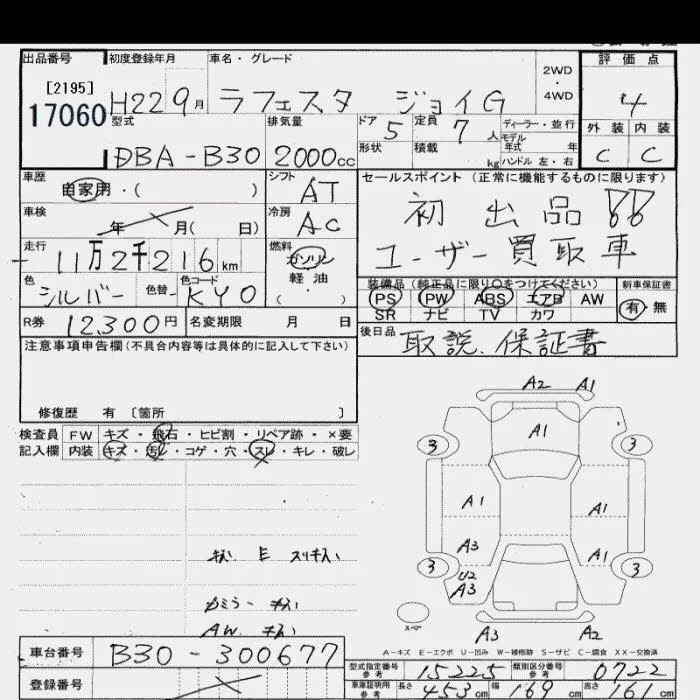 出品番号 初度登録年月 車名・グレード 2WD・4WD 評価点
[2195]
17060 H22 9月 ラフェスタ ジョイG 4
型式 排気量 ドア 5 定員 7人 ディーラー・並行 外装 内装
モデル年式 年
DBA-B30 2000cc 形状 積載 kg ハンドル 左・右 C C
車歴 自家用・( ) シフト AT セールスポイント (正常に機能するものに限ります)
車検 年 月( 日) 冷房 AC 初出品!!
走行 11万2千216km 燃料 ガソリン 軽油 ( ) ユーザー買取車
色 シルバー 色替 - 色コード KY0 装備品 (純正品に限り○をつけてください) 新車保証書
PS PW ABS エアB AW 有・無
SR ナビ TV カワ
R券 12,300円 名変期限 月 日 後日品 取説.保証書
注意事項申告欄(不具合内容等は具体的に記入して下さい)
修復歴 有 〔箇所 〕
検査員 FW キズ・飛石・ヒビ割・リペア跡・×要
記入欄 内装 キズ・汚レ・コゲ・穴・スレ・キレ・破レ
A2 A1
A1
3 3
A1 A1
A3 A1
3 U2 3
A3
スペア A3 A2
A-キズ E-エクボ U-凹み W-補修跡 S-サビ C-腐食 XX-交換済
車台番号 B30-300677
型式指定番号 参考 15225 類別区分番号 参考 0722
登録番号
車庫証明用 参考 長さ 453cm 幅 169cm 高さ cm